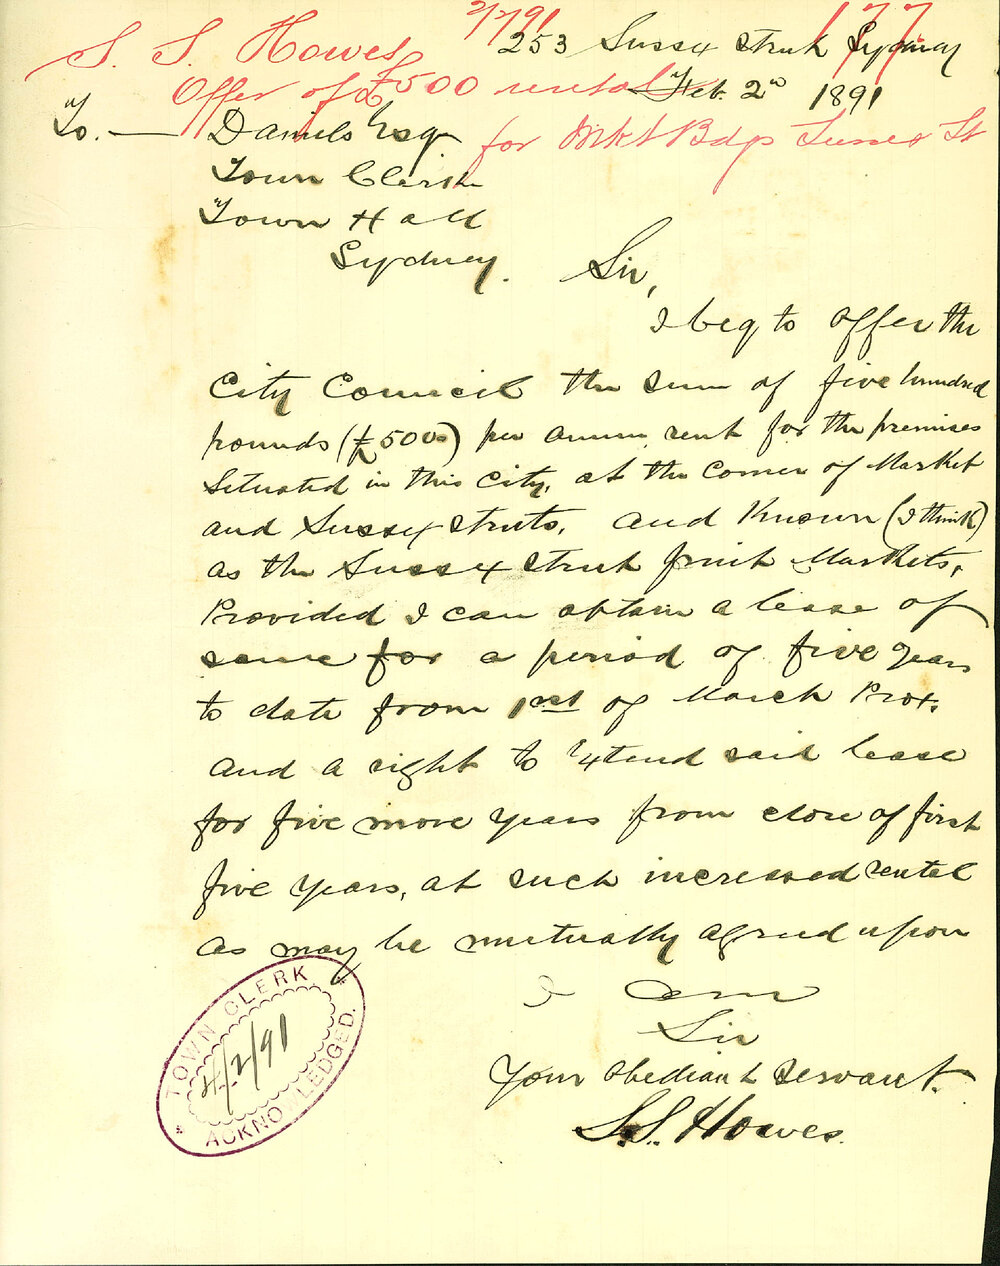 2/2/91
177
S. S. Howes
Offer of £500 rental
for Mkt Bdgs Sussex St
253 Sussex Street Sydney
Feb. 2nd 1891
To. — Daniels Esq
Town Clerk
Town Hall
Sydney.
Sir,
I beg to offer the
City Council the sum of five hundred
pounds (£500) per annum rent for the premises
situated in this city, at the corner of Market
and Sussex streets, and Known (I think)
as the Sussex Street fruit Markets,
Provided I can obtain a lease of
same for a period of five years
to date from 1st of March Prox.
and a right to extend said lease
for five more years from close of first
five years, at such increased rental
as may be mutually agreed upon
I am
Sir
Your obediant servant.
S.S. Howes.
TOWN CLERK
4/2/91
ACKNOWLEDGED.